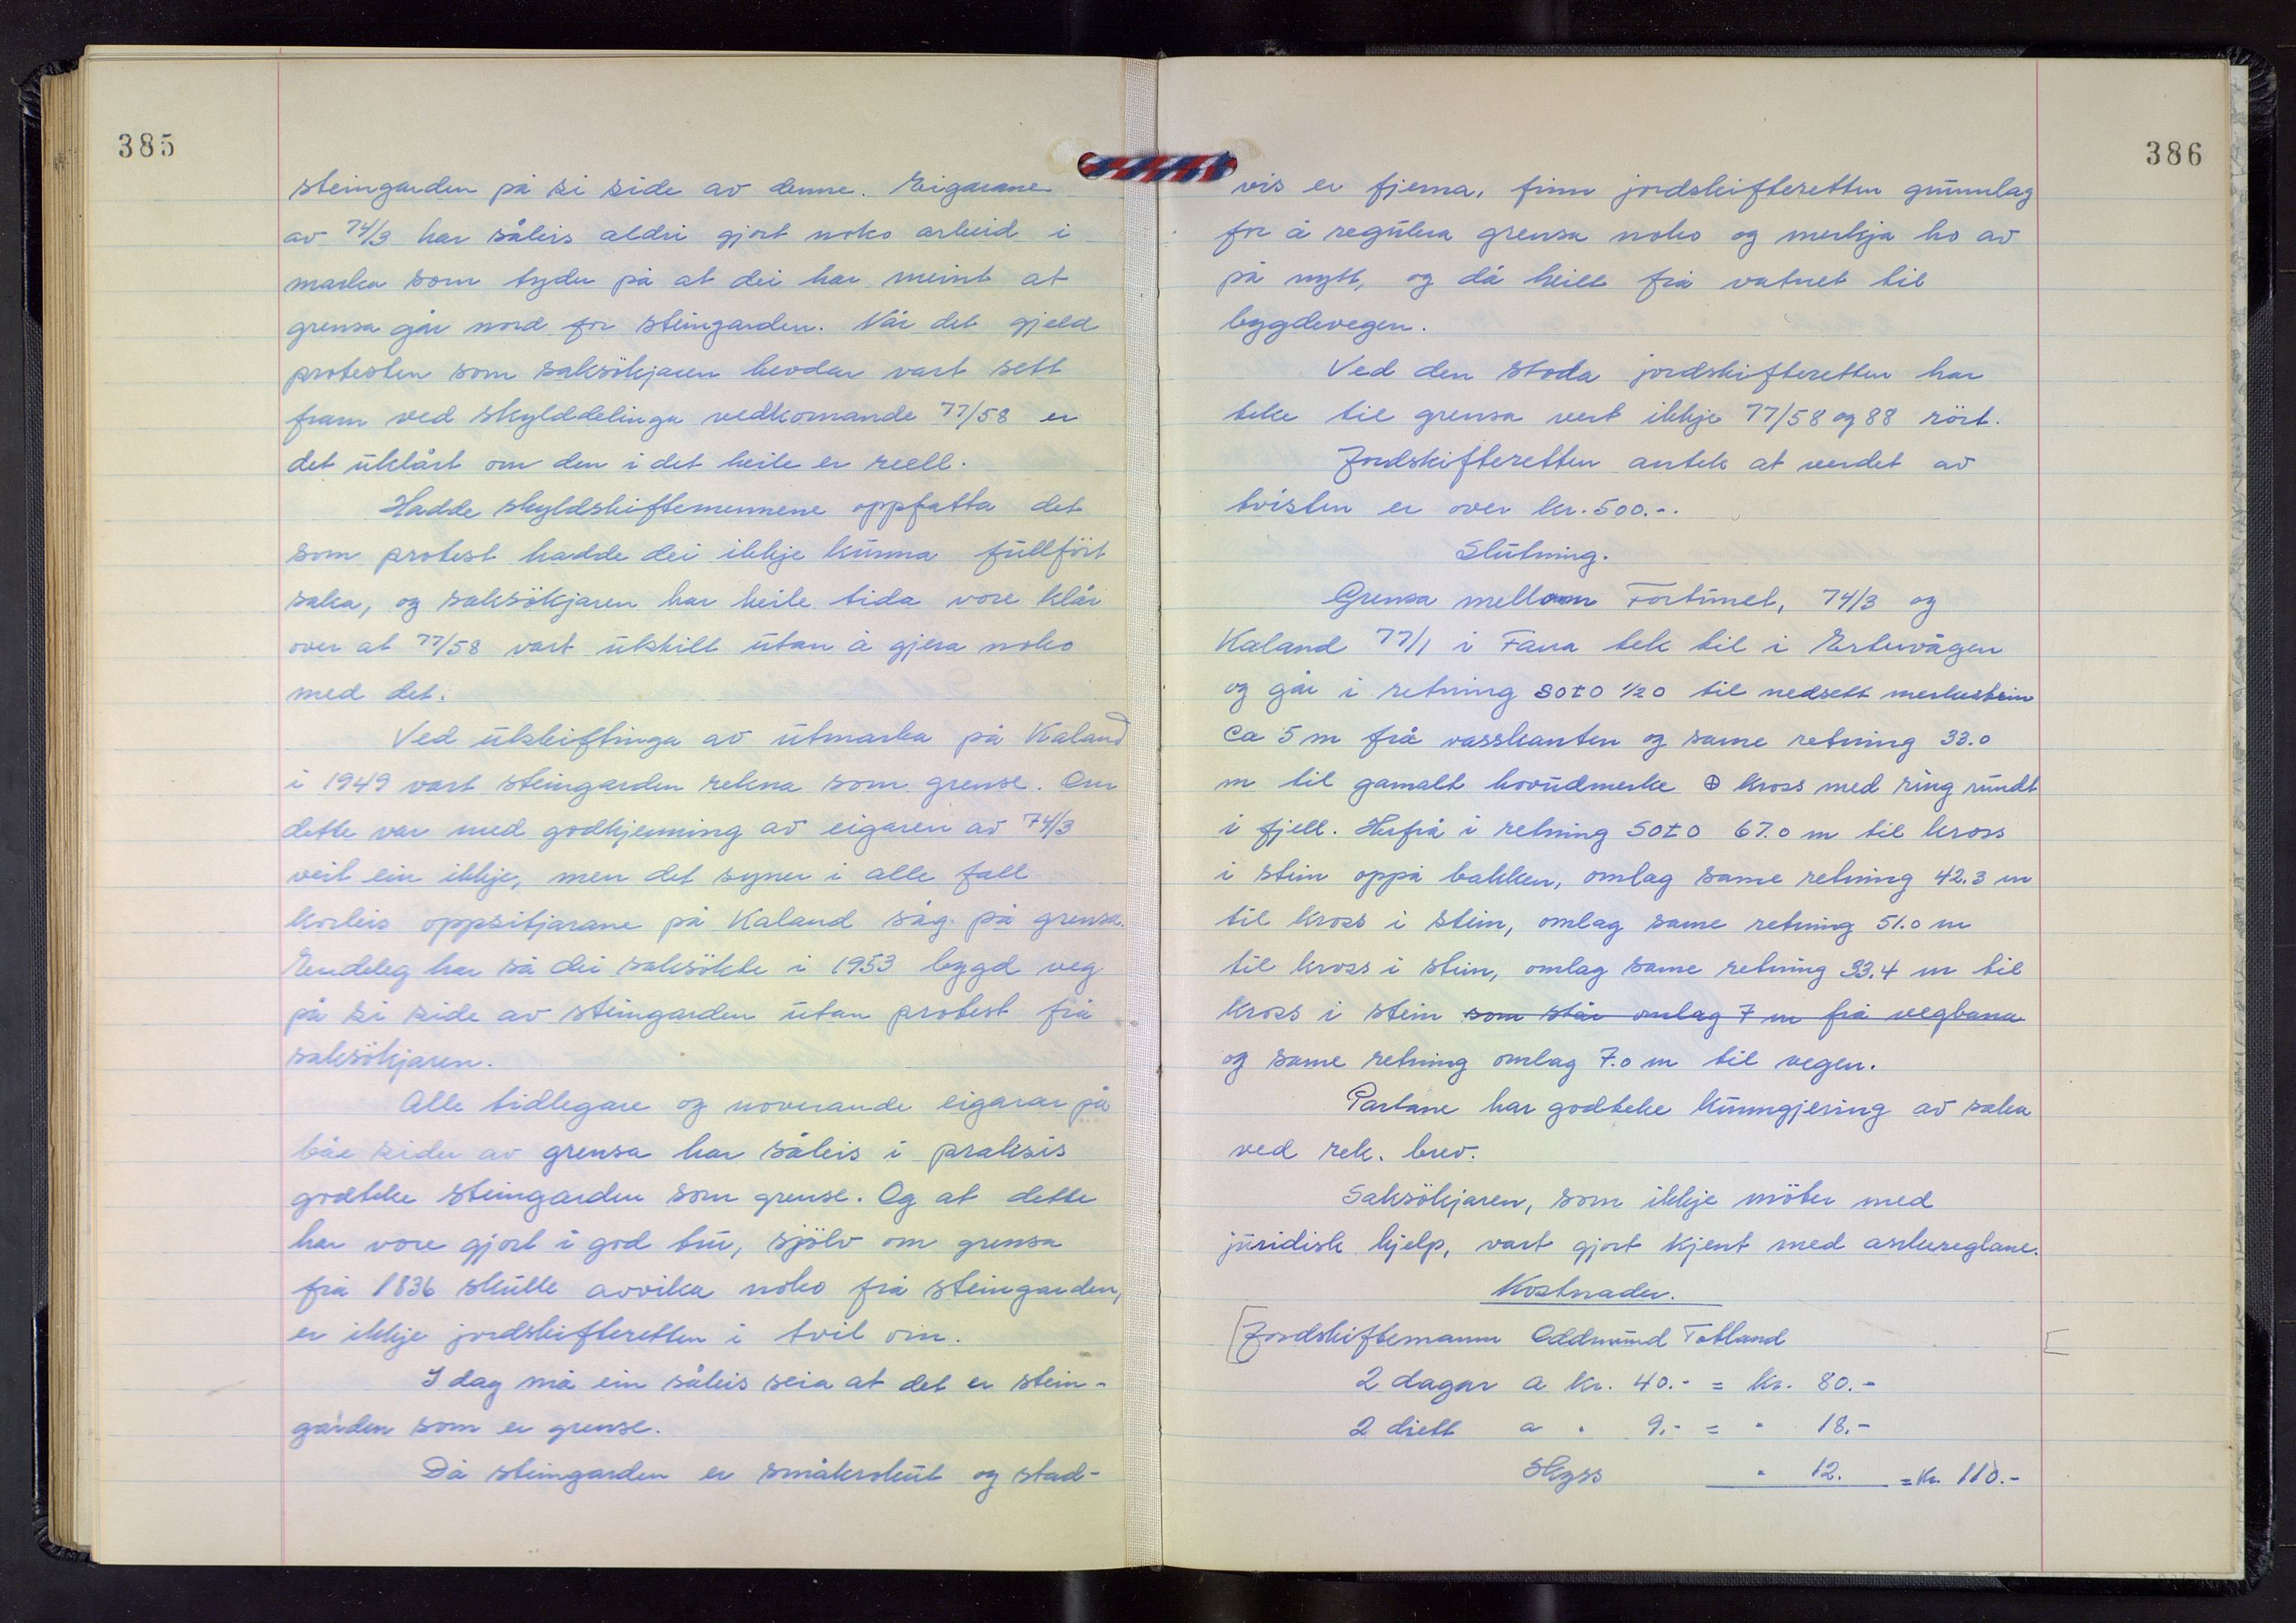 385
steingarden på si side av denne. Eigarane
av 74/3 har såleis aldri gjort noko arbeid i
marka som tyder på at dei har meint at
grensa går nord for steingarden. Når det gjeld
protesten som saksökjaren hevdar vart sett
fram ved skylddelinga vedkomande 77/58 er
det uklårt om den i det heile er reell.
Hadde skyldskiftemennene oppfatta det
som protest hadde dei ikkje kunna fullfört
saka, og saksökjaren har heile tida vore klår
over at 77/58 vart utskilt utan å gjera noko
med det.
Ved utskiftinga av utmarka på Kaland
i 1949 vart steingarden rekna som grense. Om
dette var med godkjenning av eigaren av 74/3
veit ein ikkje, men det syner i alle fall
korleis oppsitjarane på Kaland såg på grensa.
Endeleg har så dei saksökte i 1953 bygd veg
på si side av steingarden utan protest frå
saksökjaren.
Alle tidlegare og noverande eigarar på
båe sider av grensa har såleis i praksis
godteke steingarden som grense. Og at dette
har vore gjort i god tru, sjölv om grensa
frå 1836 skulle avvika noko frå steingarden,
er ikkje jordskifteretten i tvil om.
I dag må ein såleis seia at det er stein-
garden som er grense.
Då steingarden er småkrokut og stad-
386
vis er fjerna, finn jordskifteretten grunnlag
for å regulera grensa noko og merkja ho av
på nytt, og då heilt frå vatnet til
bygdevegen.
Ved den stoda jordskifteretten har
teke til grensa vert ikkje 77/58 og 88 rört.
Jordskifteretten antek at verdet av
tvisten er over kr. 500.-.
Slutning.
Grensa mellom Fortunet, 74/3 og
Kaland 77/1 i Fana tek til i Ertervågen
og går i retning SOtO 1/2 O til nedsett merkestein
ca 5 m frå vasskanten og same retning 33.0
m til gamalt hovudmerke ⊕ kross med ring rundt
i fjell. Herfrå i retning SOtO 67.0 m til kross
i stein oppå bakken, omlag same retning 42.3 m
til kross i stein, omlag same retning 51.0 m
til kross i stein, omlag same retning 33.4 m til
kross i stein som står omlag 7 m frå vegbana
og same retning omlag 7.0 m til vegen.
Partane har godteke kunngjering av saka
ved rek. brev.
Saksökjaren, som ikkje möter med
juridisk hjelp, vart gjort kjent med ankereglane.
Kostnader.
[Jordskiftemann Oddmund Totland [
2 dagar a kr. 40.- = kr. 80.-
2 diett a " 9.- = " 18.-
Skyss " 12. = Kr. 110.-